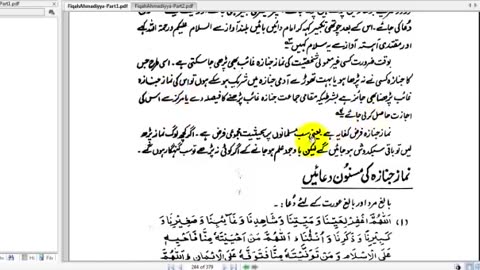 Part1.pdf
FiqahAhmadiyya-Part1.pdf
FiqahAhmadiyya-Part2.pdf
دعا کی جائے۔ اس کے بعد چوتھی تکبیر کہہ کر امام دائیں بائیں بلند آواز سے السلام علیکم ورحمۃ اللہ کہے
اور مقتدی آہستہ آواز سے یہ سلام کہیں۔
بوقت ضرورت کسی غیر معمولی شخصیت کی نماز جنازہ غائب بھی پڑھی جا سکتی ہے۔ اسی طرح جس
کا جنازہ کسی نے نہ پڑھا ہو یا بہت تھوڑے آدمی جنازہ میں شریک ہو سکے ہوں تو اس کی نماز جنازہ
غائب پڑھنا بھی جائز ہے بشرطیکہ مقامی جماعت جنازہ غائب پڑھنے کا فیصلہ دے یا مرکز سے اس کی
اجازت حاصل کر لی جائے۔
نماز جنازہ فرض کفایہ ہے یعنی سب مسلمانوں پر بحیثیت مجموعی فرض ہے۔ اگر کچھ لوگ نماز پڑھ
لیں تو باقی سبکدوش ہو جائیں گے لیکن باوجود علم ہو جانے کے اگر کوئی نہ پڑھے تو سب گنہگار ہوں گے۔
نماز جنازہ کی مسنون دعائیں
بالغ مرد اور بالغ عورت کے لئے دُعا :-
(۱) اَللّٰهُمَّ اغْفِرْ لِحَيِّنَا وَمَيِّتِنَا وَشَاهِدِنَا وَغَآئِبِنَا وَصَغِيْرِنَا وَ
كَبِيْرِنَا وَذَكَرِنَا وَاُنْثٰنَا اَللّٰهُمَّ مَنْ اَحْيَيْتَهٗ مِنَّا فَاَحْيِهٖ
عَلَى الْاِسْلَامِ وَمَنْ تَوَفَّيْتَهٗ مِنَّا فَتَوَفَّهٗ عَلَى الْاِيْمَانِ اَللّٰهُمَّ
264 of 379
Find